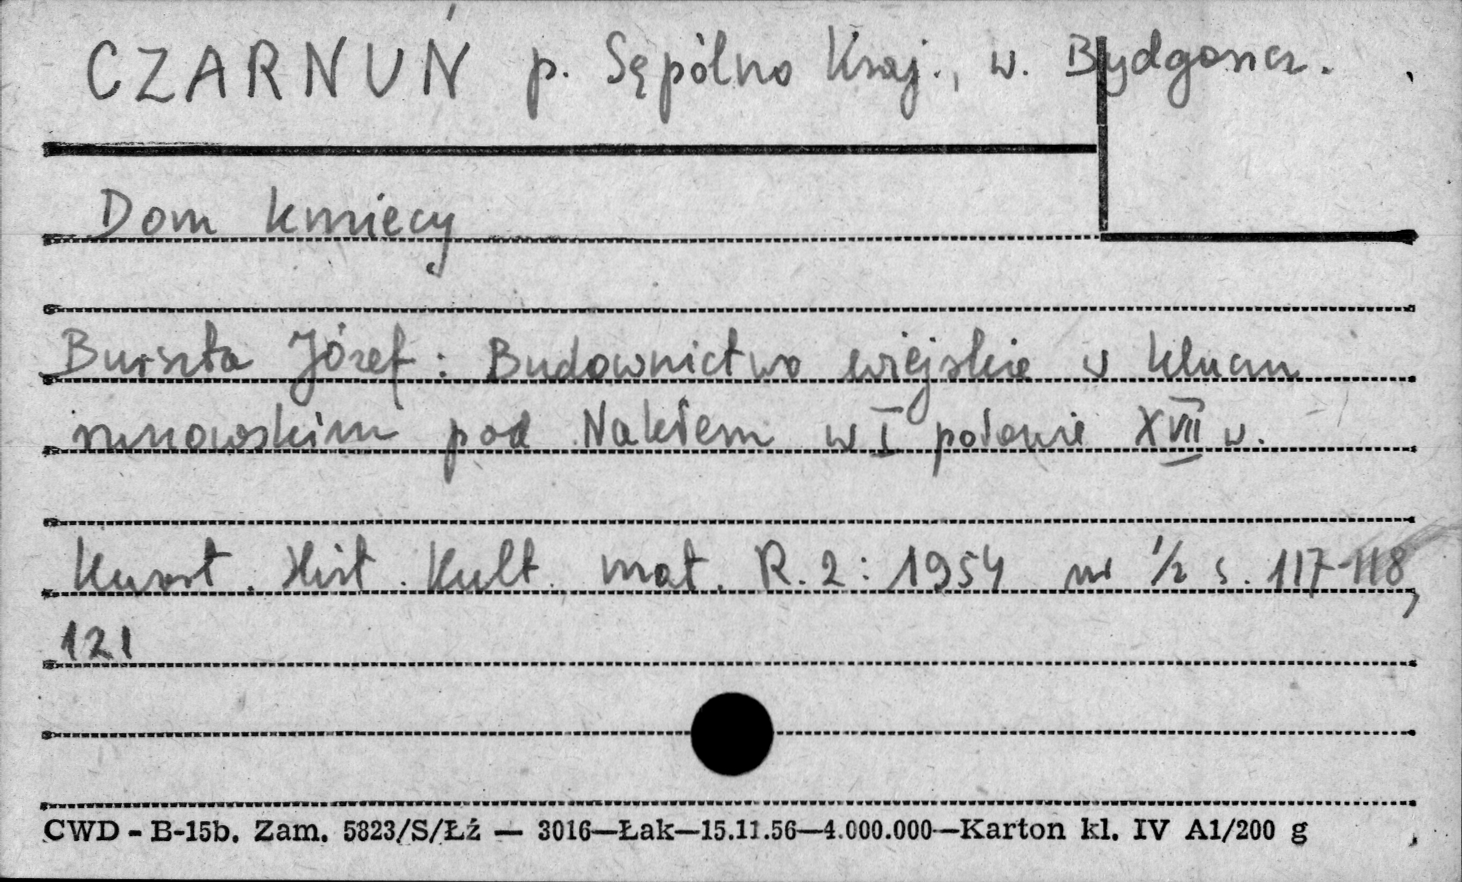 CZARNUŃ p. Sępólno Kraj., w. Bydgoszcz.
Dom kmiecy
Burszta Józef: Budownictwo wiejskie w kluczu
runowskim pod Nakłem w I połowie XVII w.
Kwart. Hist. Kult. mat. R. 2: 1954 nr 1/2 s. 117-118,
121
CWD - B-15b. Zam. 5823/S/Łź — 3016—Łak—15.11.56—4.000.000—Karton kl. IV A1/200 g